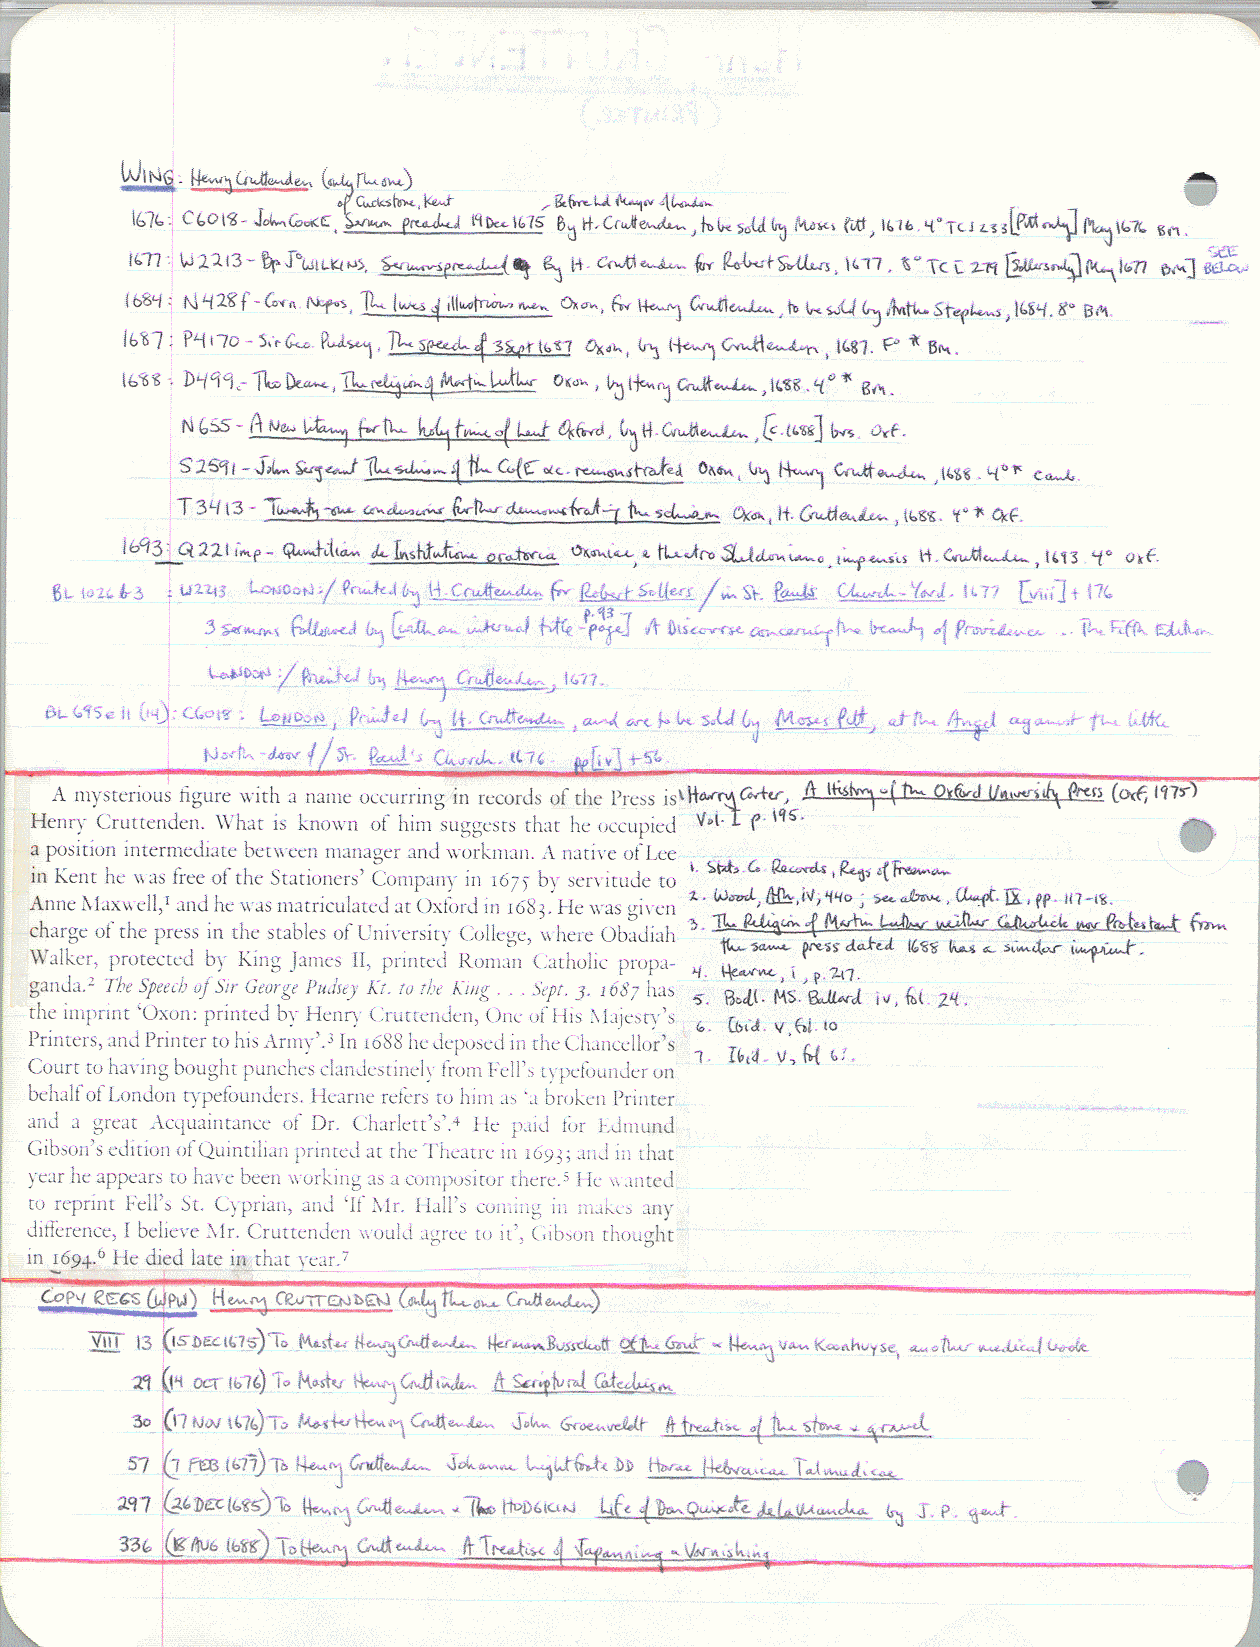 WING: Henry Cruttenden (only the one)
of Cuckstone, Kent Before Ld Mayor of London
1676: C6018 - John COOKE, Sermon preached 19 Dec 1675 By H. Cruttenden, to be sold by Moses Pitt, 1676. 4° TC I 233 [Pitt only] May 1676 BM.
SEE
1677: W2213 - Bp Jo WILKINS, Sermons preached By H. Cruttenden for Robert Sollers, 1677. 8° TC I 279 [Sollers only] May 1677 BM] BELOW
1684: N428f - Corn. Nepos, The lives of illustrious men Oxon, for Henry Cruttenden, to be sold by Antho Stephens, 1684. 8° BM.
1687: P4170 - Sir Geo. Pudsey, The speech of 3 Sept 1687 Oxon, by Henry Cruttenden, 1687. F° * BM.
1688: D499 - Tho Deane, The religion of Martin Luther Oxon, by Henry Cruttenden, 1688. 4° * BM.
N655 - A New litany for the holy time of Lent Oxford, by H. Cruttenden, [c.1688] brs. Oxf.
S2591 - John Sergeant The schism of the CofE &c. remonstrated Oxon, by Henry Cruttenden, 1688. 4° * Camb.
T3413 - Twenty-one conclusions further demonstrating the schism Oxon, H. Cruttenden, 1688. 4° * Oxf.
1693: Q221 imp - Quintilian de Institutione oratoria Oxoniae, e theatro Sheldoniano, impensis H. Cruttenden, 1693. 4° Oxf.
BL 1026 b 3 : W2213 LONDON:/ Printed by H. Cruttenden for Robert Sollers / in St. Pauls Church-Yard. 1677 [viii] + 176
p. 93
3 Sermons followed by [with an internal title-page] A Discourse concerning the beauty of Providence ... The Fifth Edition
LONDON:/ Printed by Henry Cruttenden, 1677.
BL 695 e 11 (14): C6018: LONDON, Printed by H. Cruttenden, and are to be sold by Moses Pitt, at the Angel against the little
North-door of / St. Paul's Church. 1676. pp [iv] + 56.
A mysterious figure with a name occurring in records of the Press is
Henry Cruttenden. What is known of him suggests that he occupied
a position intermediate between manager and workman. A native of Lee
in Kent he was free of the Stationers' Company in 1675 by servitude to
Anne Maxwell,¹ and he was matriculated at Oxford in 1683. He was given
charge of the press in the stables of University College, where Obadiah
Walker, protected by King James II, printed Roman Catholic propa-
ganda.² The Speech of Sir George Pudsey Kt. to the King . . . Sept. 3. 1687 has
the imprint 'Oxon: printed by Henry Cruttenden, One of His Majesty's
Printers, and Printer to his Army'.³ In 1688 he deposed in the Chancellor's
Court to having bought punches clandestinely from Fell's typefounder on
behalf of London typefounders. Hearne refers to him as 'a broken Printer
and a great Acquaintance of Dr. Charlett's'.⁴ He paid for Edmund
Gibson's edition of Quintilian printed at the Theatre in 1693; and in that
year he appears to have been working as a compositor there.⁵ He wanted
to reprint Fell's St. Cyprian, and 'If Mr. Hall's coming in makes any
difference, I believe Mr. Cruttenden would agree to it', Gibson thought
in 1694.⁶ He died late in that year.⁷
Harry Carter, A History of the Oxford University Press (Oxf, 1975)
Vol. I p. 195.
1. Stats. Co Records, Regs of Freeman
2. Wood, Ath, iv, 440; see above, Chapt. IX, pp. 117-18.
3. The Religion of Martin Luther neither Catholick nor Protestant from
the same press dated 1688 has a similar imprint.
4. Hearne, i, p. 217.
5. Bodl. MS. Ballard iv, fol. 24.
6. Ibid. v, fol. 10
7. Ibid. v, fol 61.
COPY REGS (WPW) Henry CRUTTENDEN (only the one Cruttenden)
VIII 13 (15 DEC 1675) To Master Henry Cruttenden Herman Busschoff Of the Gout & Henry van Roonhuyse, another medical book
29 (14 OCT 1676) To Master Henry Cruttinden A Scriptural Catechism
30 (17 NOV 1676) To Master Henry Cruttenden John Groenveldt A treatise of the stone & gravel
57 (7 FEB 1677) To Henry Cruttenden Johanne Lightfoote DD Horae Hebraicae Talmudicae
297 (26 DEC 1685) To Henry Cruttenden & Tho HODGKIN Life of Don Quixote de la Mancha by J. P. gent.
336 (18 AUG 1688) To Henry Cruttenden A Treatise of Japanning & Varnishing